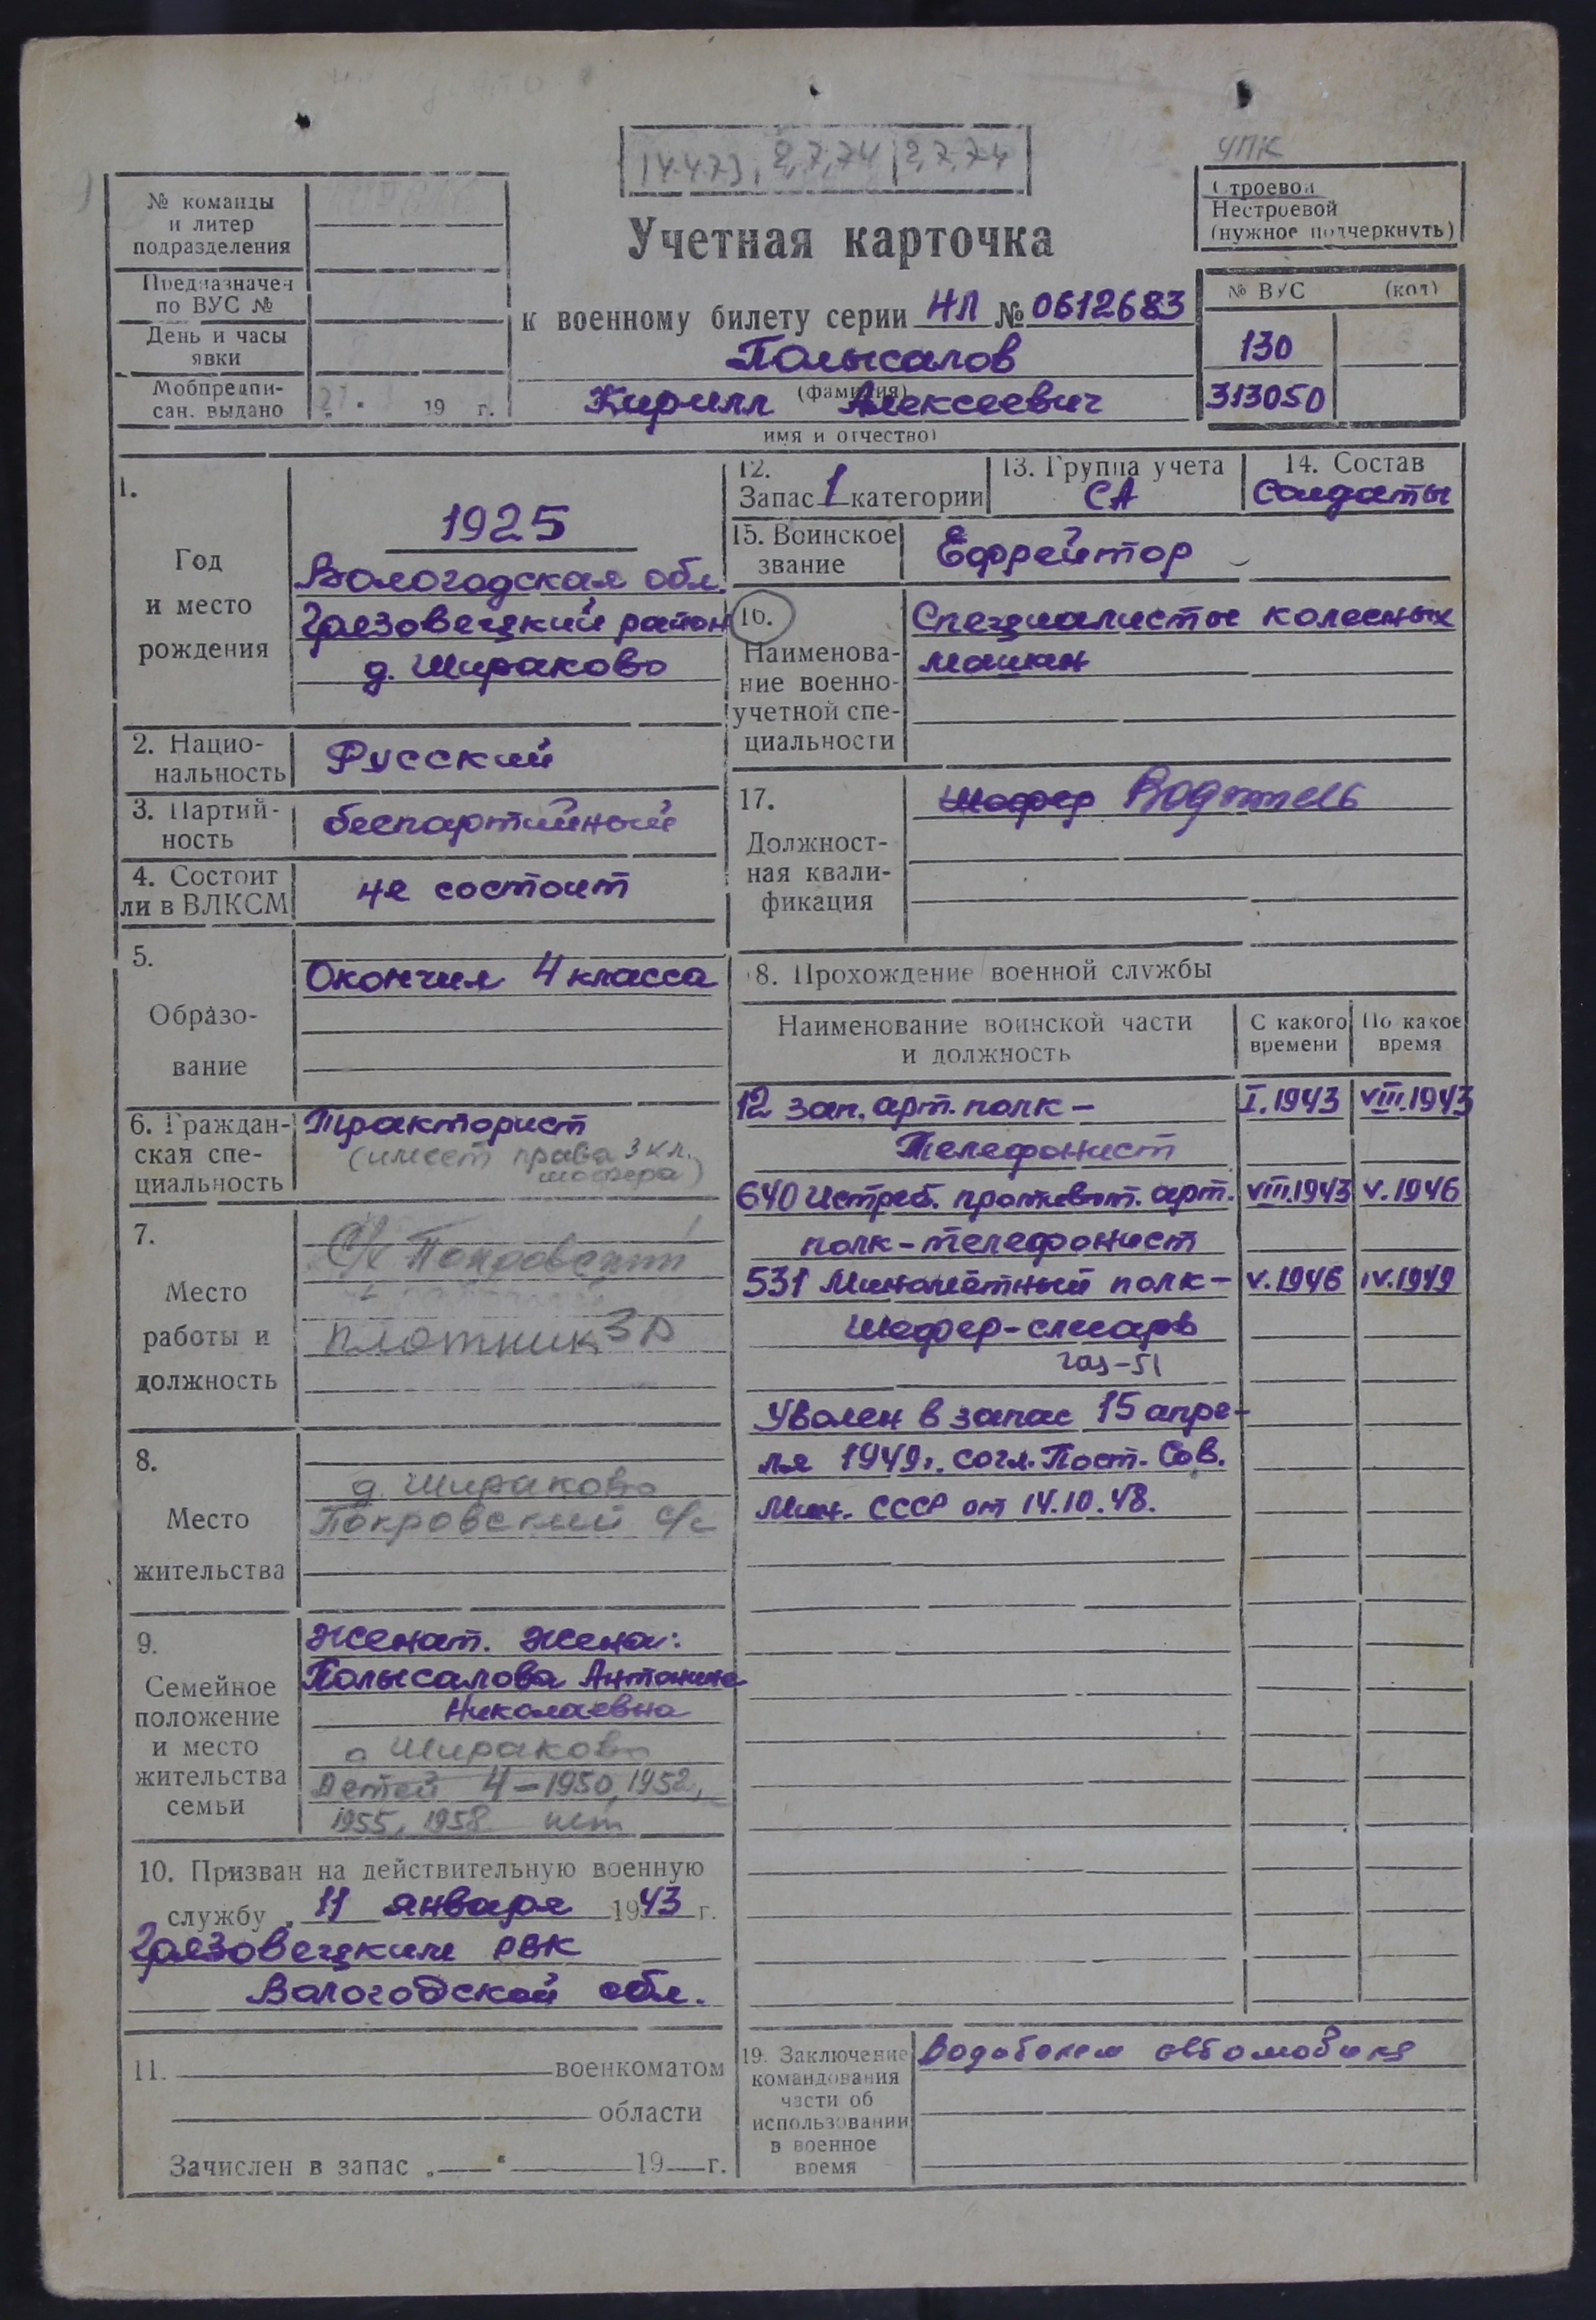 УПК
14.4.73, 2,7,74 2,7,74
Строевой
Нестроевой
(нужное подчеркнуть)
№ команды
и литер
подразделения
Предназначен
по ВУС №
День и часы
явки
Мобпредпи-
сан. выдано
19 г.
Учетная карточка
к военному билету серии НЛ № 0612683
Полысалов
(фамилия)
Кирилл Алексеевич
имя и отчество)
№ ВУС (код)
130
313050
1.
Год
и место
рождения
1925
Вологодская обл.
Грязовецкий район
д. Шираково
2. Нацио-
нальность
Русский
3. Партий-
ность
беспартийный
4. Состоит
ли в ВЛКСМ
не состоит
5.
Образо-
вание
Окончил 4 класса
6. Граждан-
ская спе-
циальность
Тракторист
(имеет права 3 кл.
шофера)
7.
Место
работы и
должность
плотник 3 р
8.
Место
жительства
д. Шираково
Покровский с/с
9.
Семейное
положение
и место
жительства
семьи
Женат. Жена:
Полысалова Антонина
Николаевна
д Шираково
Детей 4-1950, 1952,
1955, 1958
10. Призван на действительную военную
службу „ 11 января 1943 г.
Грязовецким РВК
Вологодской обл.
11. военкоматом
области
Зачислен в запас „ “ 19 г.
12.
Запас 1 категории
13. Группа учета
СА
14. Состав
Солдаты
15. Воинское
звание
Ефрейтор
16.
Наименова-
ние военно-
учетной спе-
циальности
Специалисты колесных
машин
17.
Должност-
ная квали-
фикация
Шофер Водитель
8. Прохождение военной службы
Наименование воинской части
и должность
С какого
времени
По какое
время
12 зап. арт. полк – I. 1943 VIII.1943
Телефонист
640 Истреб. противот. арт. VIII.1943 V. 1946
полк - телефонист
531 Миномётный полк – V. 1946 IV.1949
Шофер-слесарь
Газ-51
Уволен в запас 15 апре-
ля 1949г. согл. Пост. Сов.
Мин. СССР от 14.10.48.
19. Заключение
командования
части об
использовании
в военное
время
Водителем автомобиля